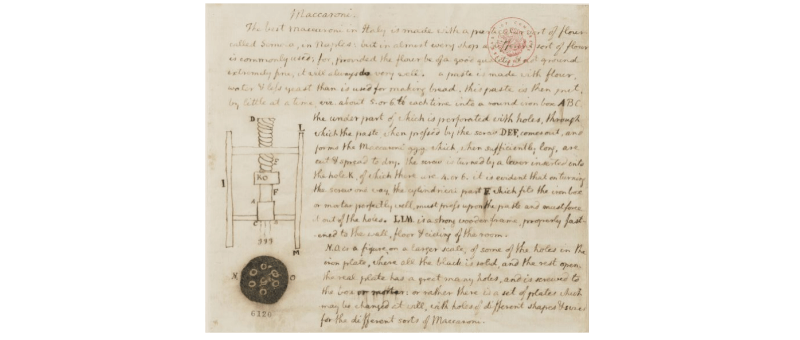 Maccaroni.
The best maccaroni in Italy is made with a particular sort of flour
called Semola, in Naples: but in almost every shop a different sort of flour
is commonly used; for, provided the flour be of a good quality, & not ground
extremely fine, it will always do very well. a paste is made with flour,
water & less yeast than is used for making bread. this paste is then put,
by little at a time, viz. about 5. or 6. lb each time into a round iron box ABC.
the under part of which is perforated with holes, through
which the paste, when pressed by the screw DEF, comes out, and
forms the Maccaroni ggg which, when sufficiently long, are
cut & spread to dry. the screw is turned by a lever inserted into
the hole K, of which there are 4. or 6. it is evident that on turning
the screw one way, the cylindrical part F. which fits the iron box
or mortar perfectly well, must press upon the paste and must force
it out of the holes. LLM. is a strong wooden frame, properly fast-
ened to the wall, floor & cieling of the room.
N.O. is a figure, on a larger scale, of some of the holes in the
iron plate, where all the black is solid, and the rest open.
the real plate has a great many holes, and is screwed to
the box or mortar: or rather there is a set of plates which
may be changed at will, with holes of different shapes & sizes
for the different sorts of Maccaroni.
D
L
E
I
KO
F
A
C
B
ggg
M
N
O
6126